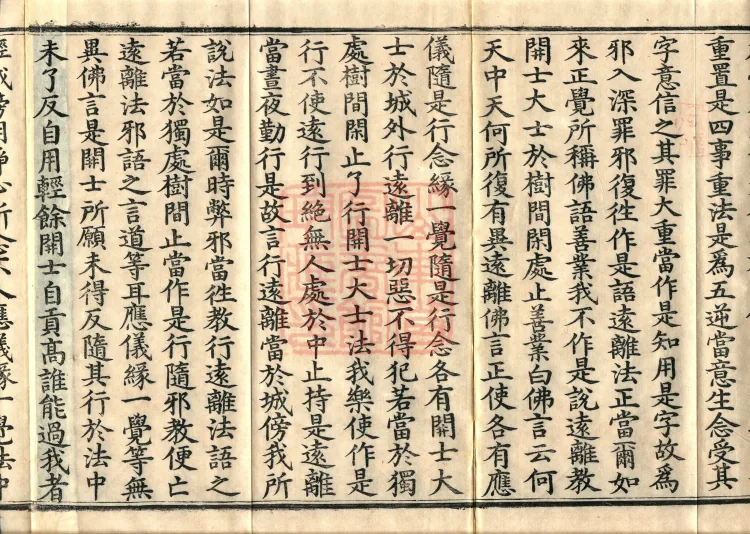 重置是四事重法是爲五逆當意生念受其
字意信之其罪大重當作是知用是字故爲
邪入深罪邪復徃作是語遠離法正當爾如
來正覺所稱佛語善業我不作是說遠離教
開士大士於樹間閑處止善業白佛言云何
天中天何所復有異遠離佛言正使各有應
儀隨是行念緣一覺隨是行念各有開士大
士於城外行遠離一切惡不得犯若當於獨
處樹間閑止了行開士大士法我樂使作是
行不使遠行到絶無人處於中止持是遠離
當晝夜勤行是故言行遠離當於城傍我所
說法如是爾時弊邪當徃教行遠離法語之
若當於獨處樹間止當作是行隨邪教便亡
遠離法邪語之言道等耳應儀緣一覺等無
異佛言是開士所願未得反隨其行於法中
未了反自用輕餘開士自貢高誰能過我者